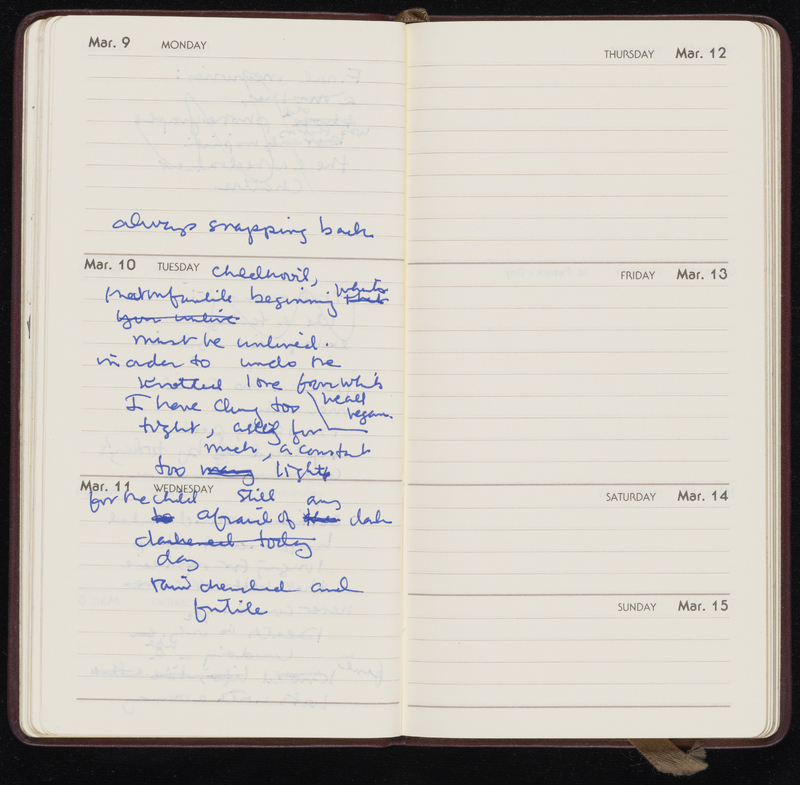 Mar. 9 MONDAY
always snapping back
Mar. 10 TUESDAY childhood,
that infantile beginning what's
that
your untive
must be unlived.
in order to undo the
knotted love from which
I have clung too we all
began.
tight, asking for
much, a constant
too many light
Mar. 11 WEDNESDAY
for the child still any
to afraid of the dark
darkened today
day
rain drenched and
futile
THURSDAY Mar. 12
FRIDAY Mar. 13
SATURDAY Mar. 14
SUNDAY Mar. 15